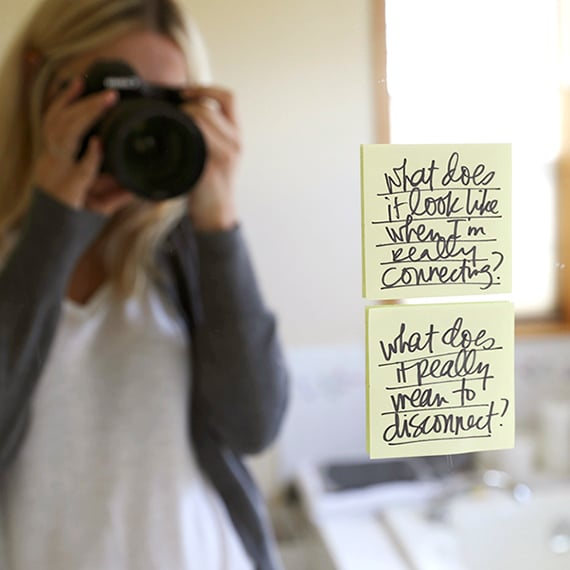 What does
it look like
when I'm
really
connecting?
What does
it really
mean to
disconnect?